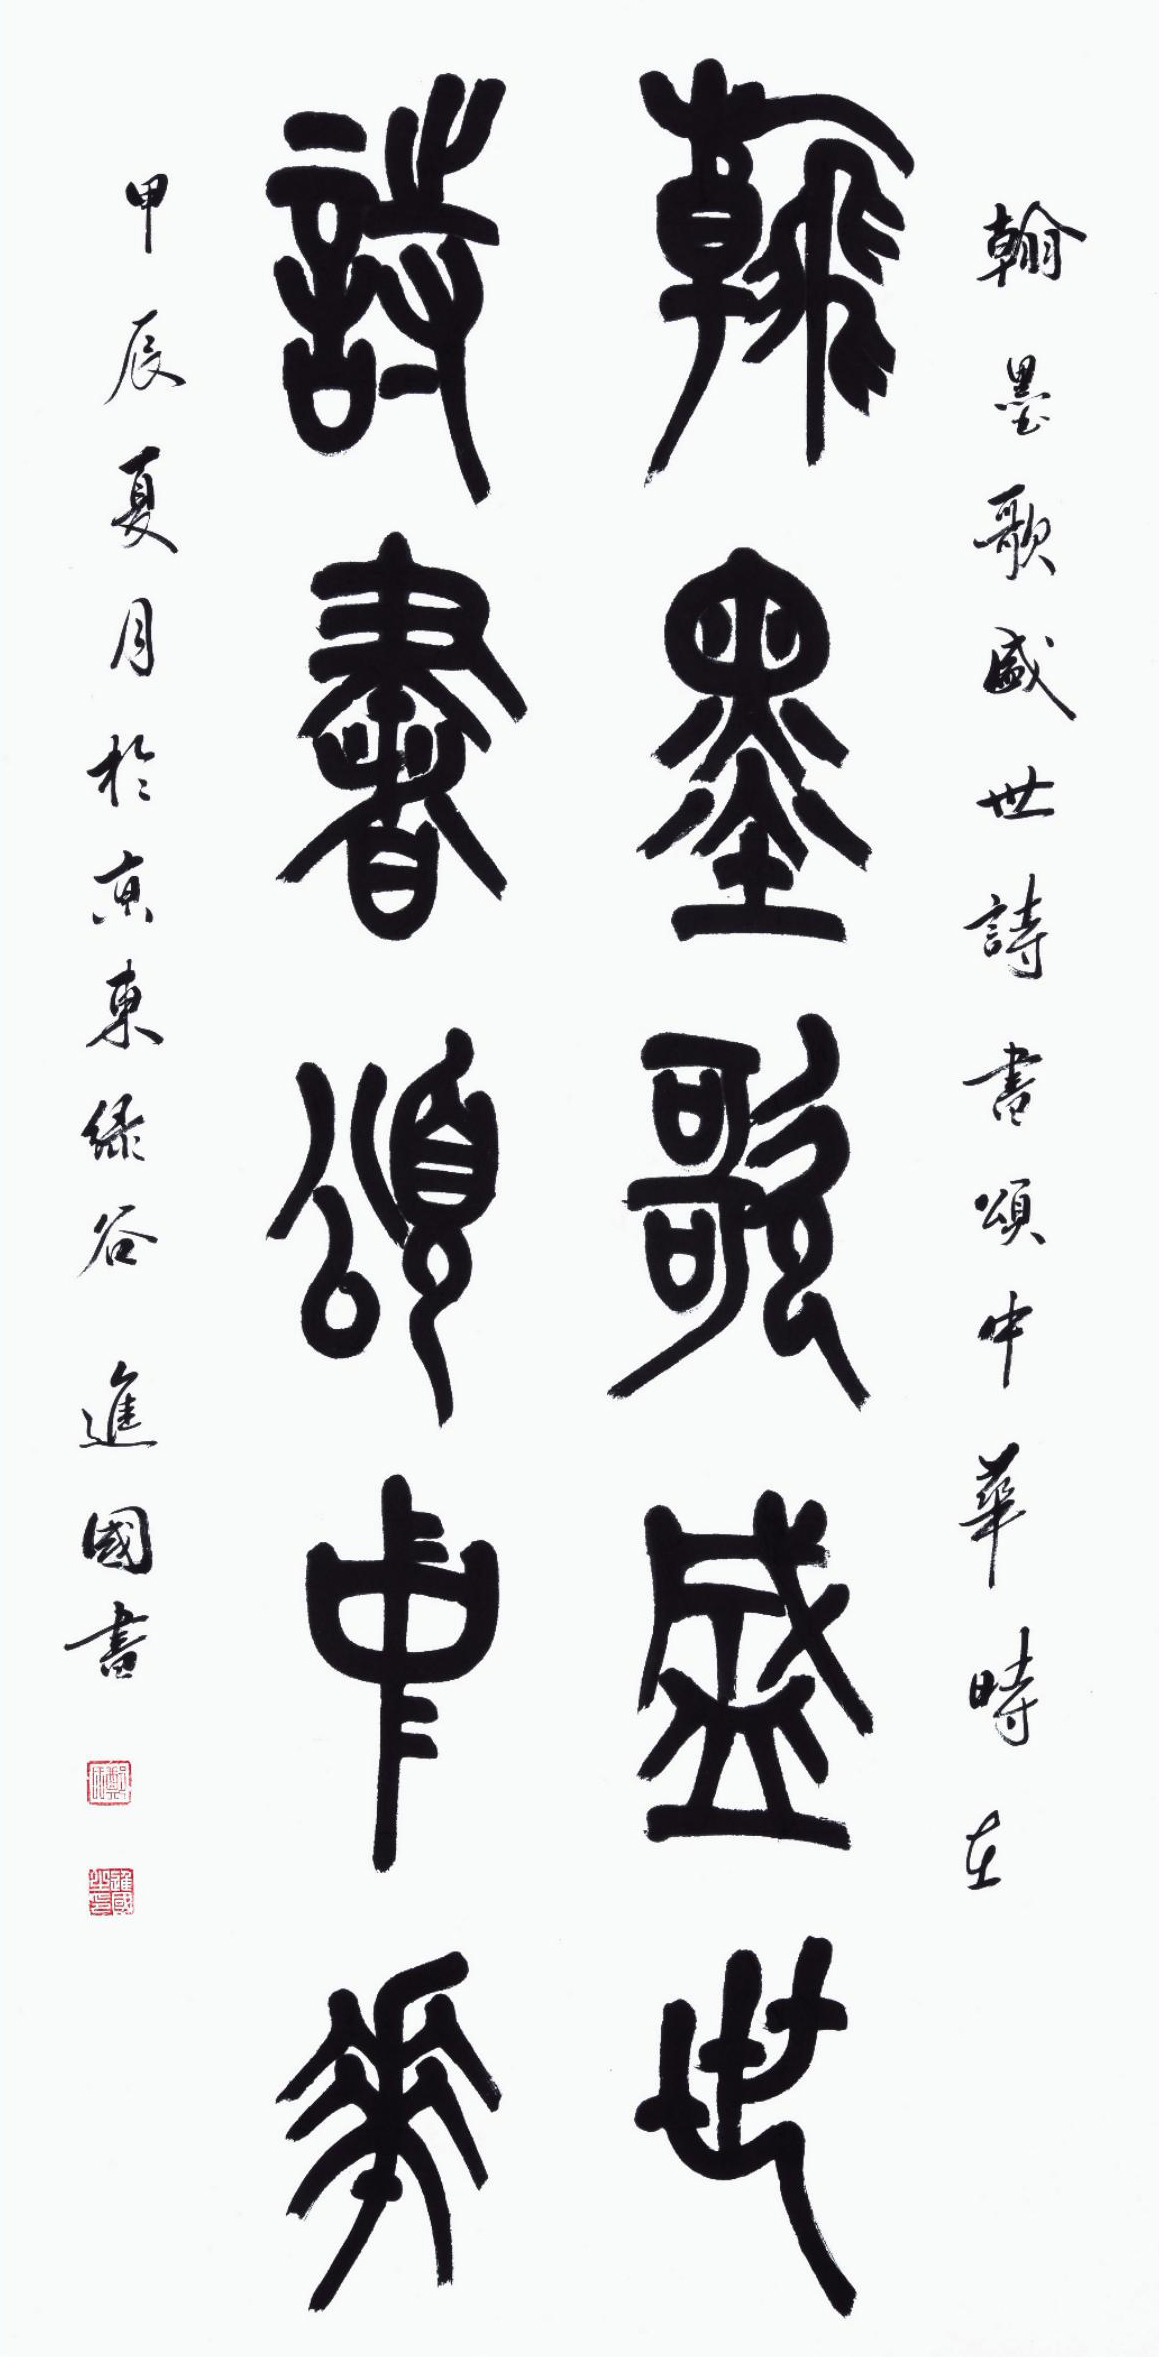 翰墨歌盛世詩書頌中華時在
翰墨歌盛世
詩書頌中華
甲辰夏月於京東緑谷進國書